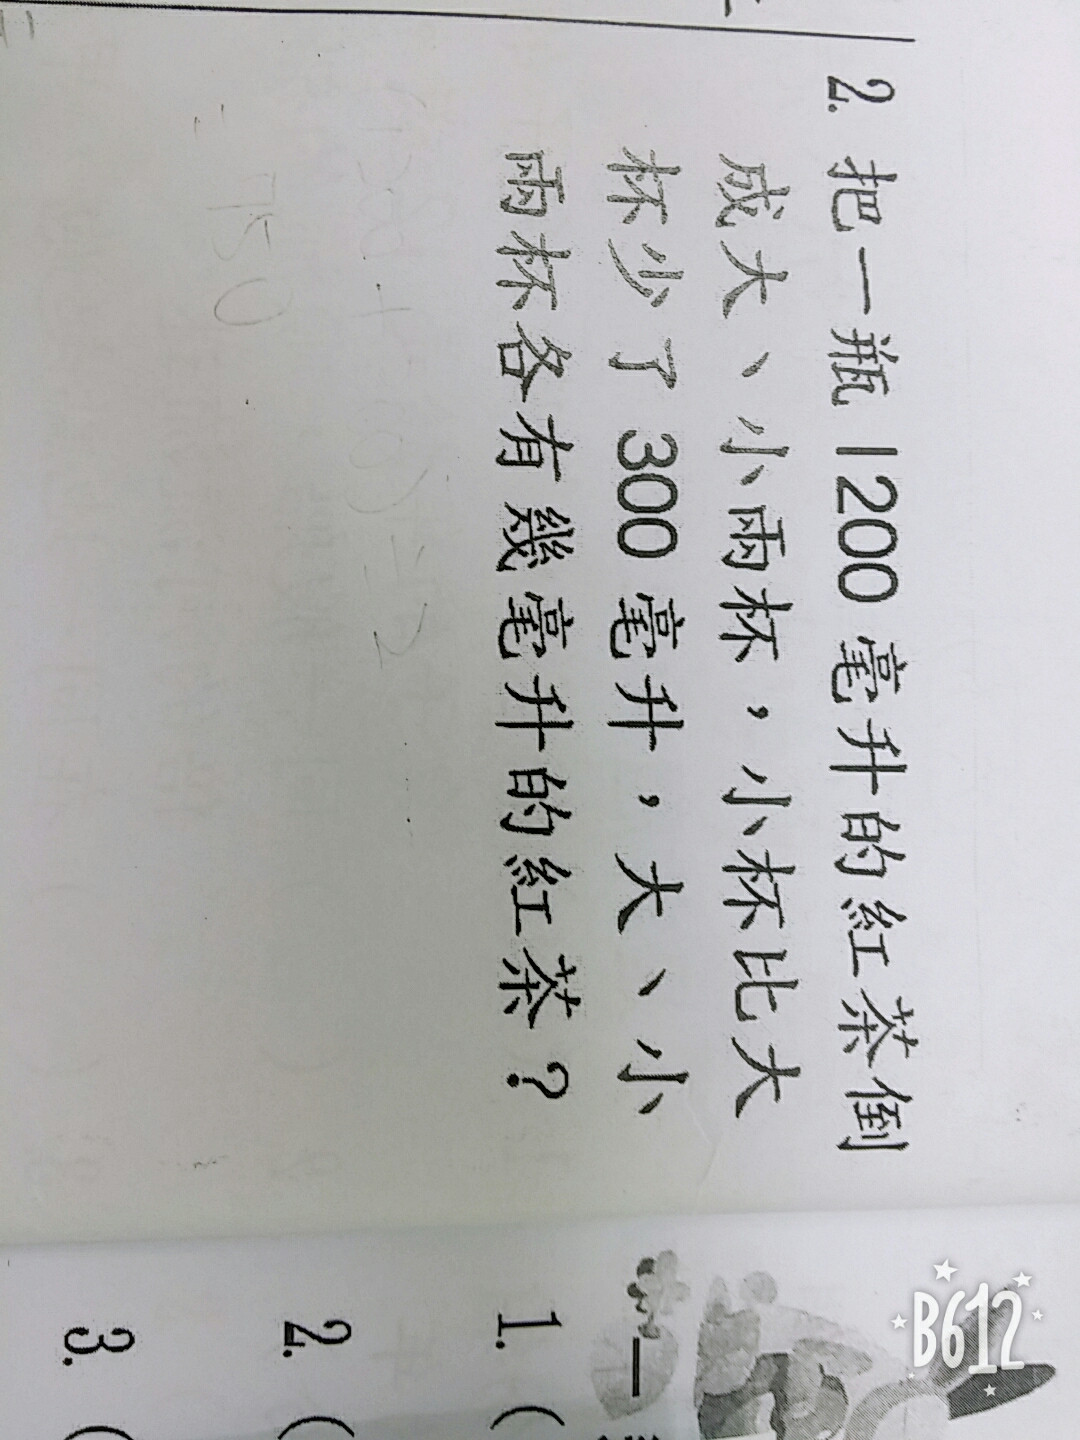 2. 把一瓶 1200 毫升的紅茶倒
成大、小兩杯，小杯比大
杯少了 300 毫升，大、小
兩杯各有幾毫升的紅茶？
= 750
一
1. (
2. (
3. (
B612